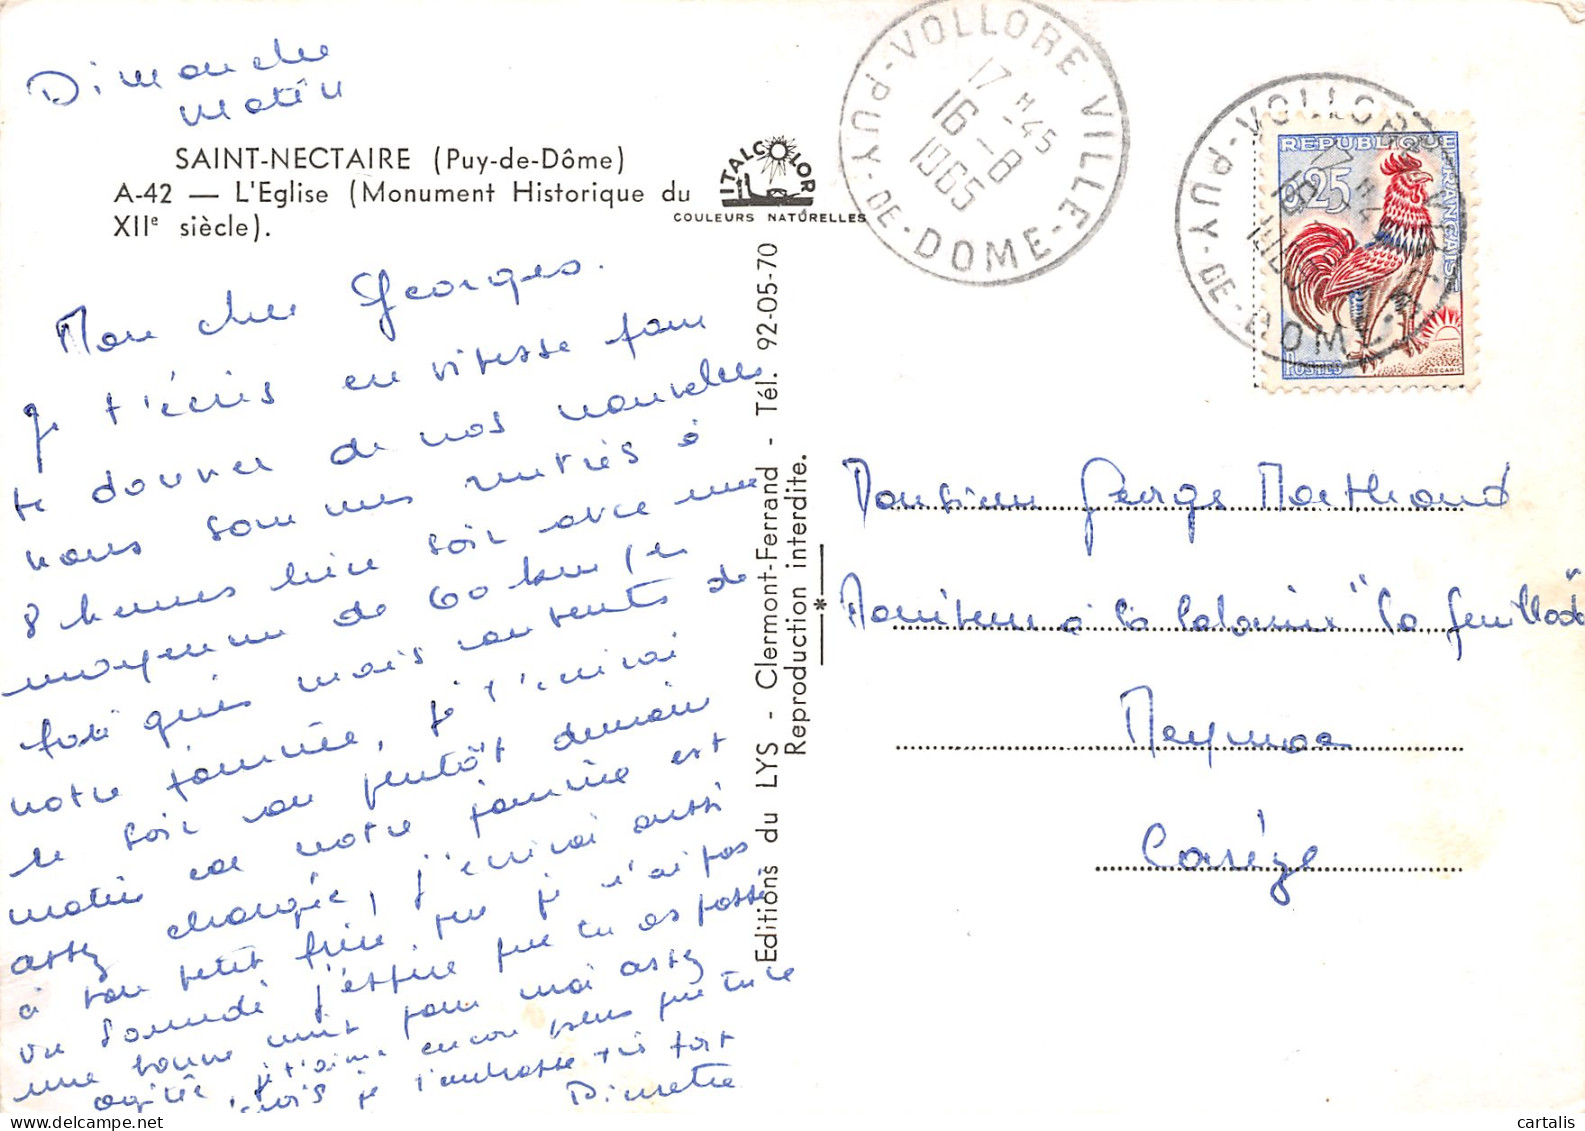 Dimanche
matin
SAINT-NECTAIRE (Puy-de-Dôme)
A-42 — L'Eglise (Monument Historique du
XIIe siècle).
ITALCOLOR
COULEURS NATURELLES
Mon cher Georges.
Je t'écris en vitesse pour
te donner de nos nouvelles
nous sommes rentrés à
8 heures hier soir avec une
moyenne de 60 km/h
mais contents de
notre journée, je t'écrirai
le soir ou plutôt demain
matin car notre journée est
assez chargée, j'écrirai aussi
à ton petit frère, que je n'ai pas
vu samedi j'espère que tu as passé
une bonne nuit pour moi assez
agitée, je t'aime encore plus que tu ne
crois je t'embrasse très fort
Pierrette
Editions du LYS - Clermont-Ferrand - Tél. 92-05-70
Reproduction interdite.
VOLLORE-VILLE
PUY-DE-DOME
17 H 45
16 - 8
1965
VOLLORE-VILLE
PUY-DE-DOME
REPUBLIQUE FRANÇAISE
0,25
POSTES
DECARIS
Monsieur George Marthand
Moniteur à la Colonie "La feuillade
Meymac
Corrèze
cartalis